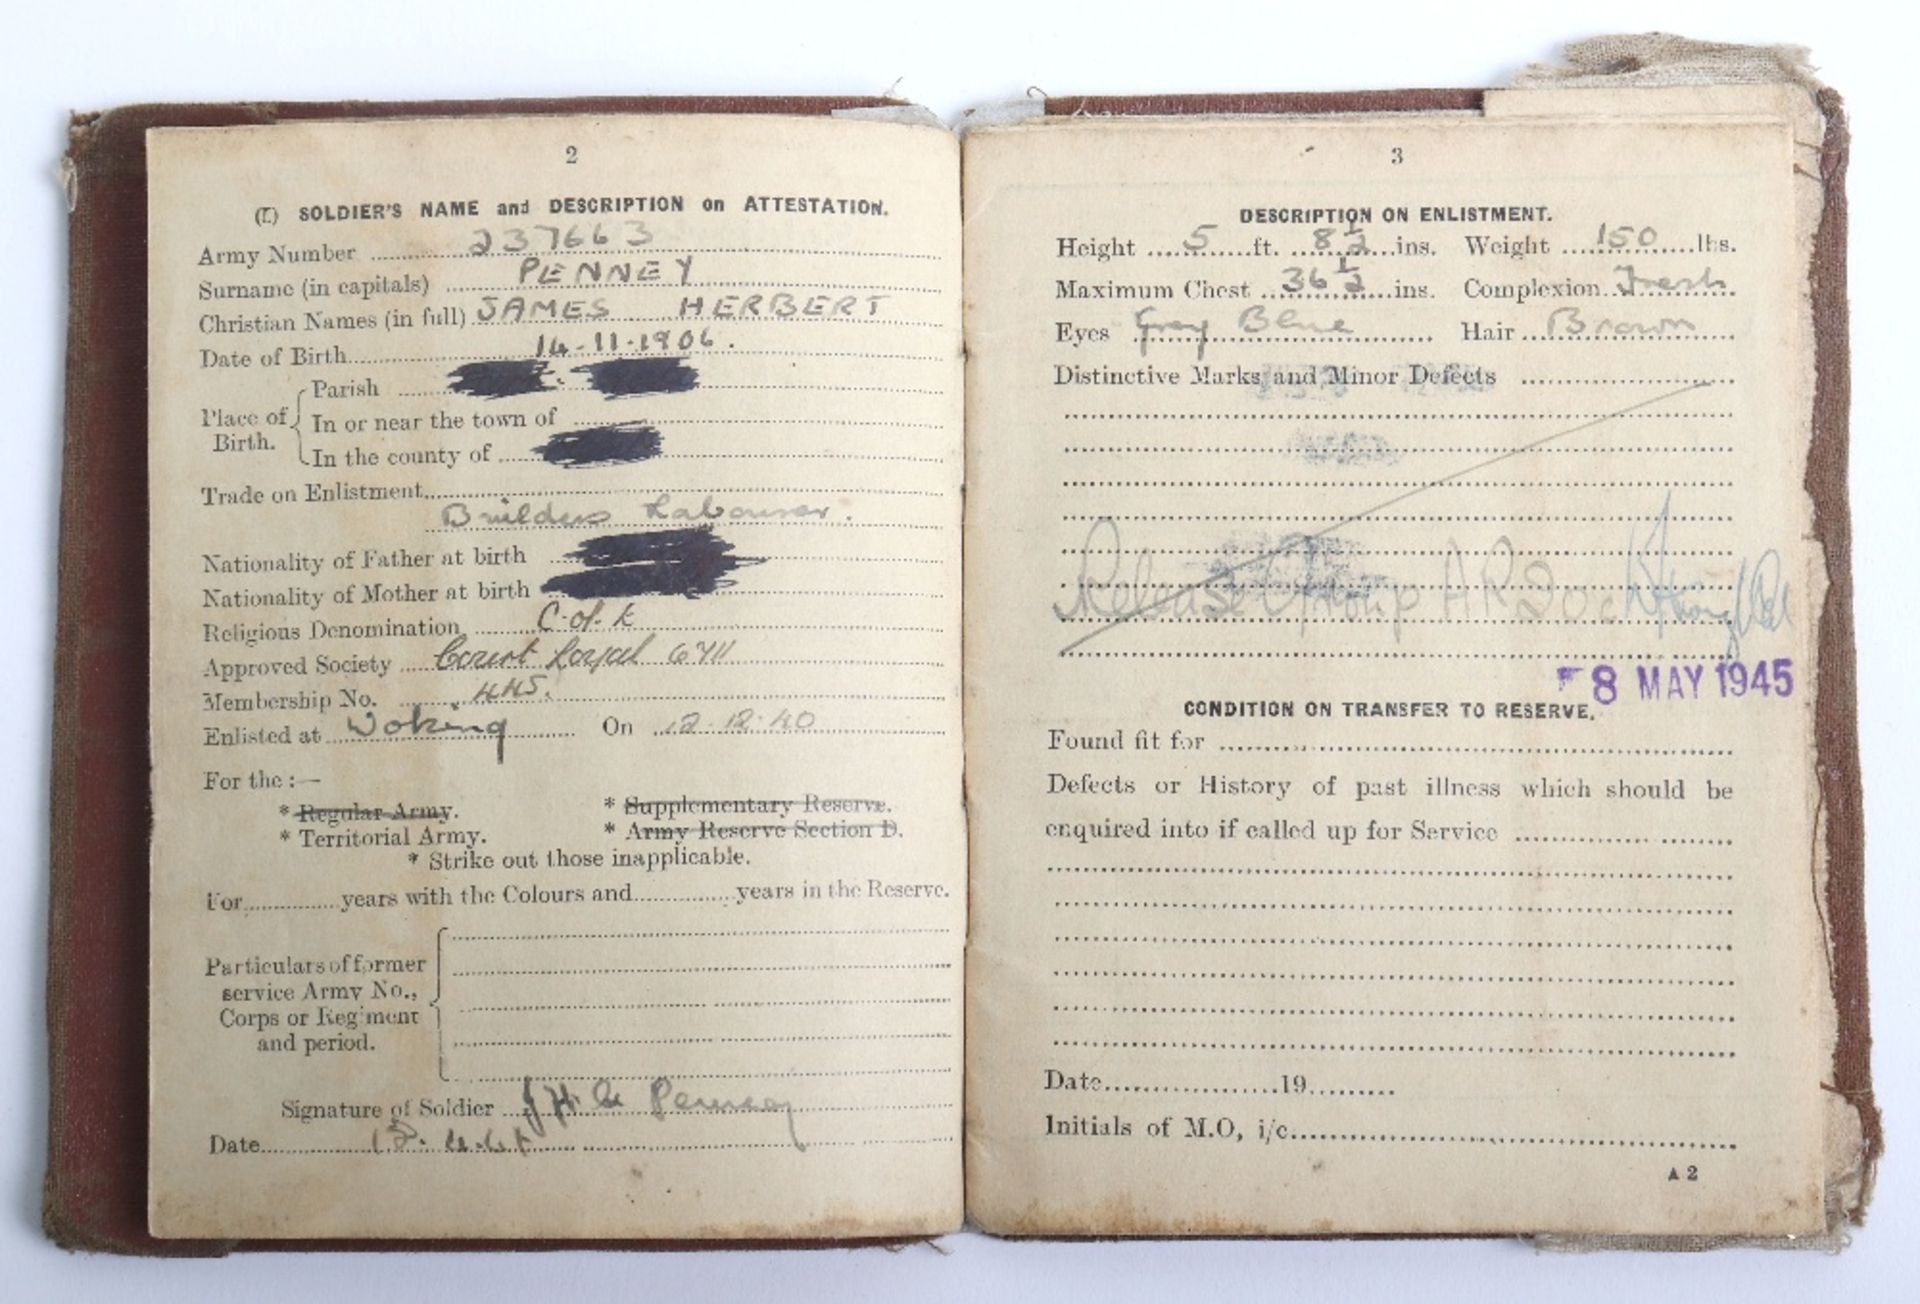 2
(I.) SOLDIER'S NAME and DESCRIPTION on ATTESTATION.
Army Number 237663
Surname (in capitals) PENNEY
Christian Names (in full) JAMES HERBERT
Date of Birth 14-11-1906.
Place of Birth.
Parish
In or near the town of
In the county of
Trade on Enlistment
Builders Labourer.
Nationality of Father at birth
Nationality of Mother at birth
Religious Denomination C-of-E
Approved Society Court Loyal 6711
Membership No. 445.
Enlisted at Woking On 12-12-40
For the :—
* Regular Army. * Supplementary Reserve.
* Territorial Army. * Army Reserve Section D.
* Strike out those inapplicable.
For years with the Colours and years in the Reserve.
Particulars of former
service Army No.,
Corps or Regiment
and period.
Signature of Soldier Penney
Date
3
DESCRIPTION ON ENLISTMENT.
Height 5 ft. 8 1/2 ins. Weight 150 lbs.
Maximum Chest 36 1/2 ins. Complexion Fresh
Eyes Grey Blue Hair Brown
Distinctive Marks and Minor Defects
Release Group
8 MAY 1945
CONDITION ON TRANSFER TO RESERVE.
Found fit for
Defects or History of past illness which should be
enquired into if called up for Service
Date 19
Initials of M.O, i/c
A 2